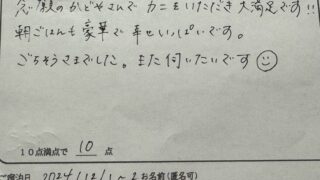 念願のかどやさんで カニをいただき大満足です!!
朝ごはんも豪華で 幸せいっぱいです。
ごちそうさまでした。また伺いたいです☺
10点満点で 10 点
ご宿泊日 2024/12/1~2 お名前(匿名可)